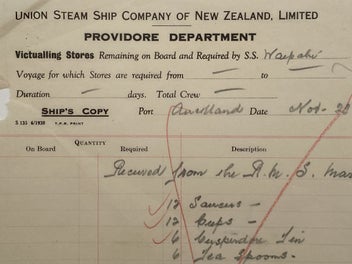 UNION STEAM SHIP COMPANY OF NEW ZEALAND, LIMITED
PROVIDORE DEPARTMENT
Victualling Stores Remaining on Board and Required by S.S. Waipahi
Voyage for which Stores are required from — to
Duration — days. Total Crew —
SHIP'S COPY Port Auckland Date Nov. 22
S 135 6/1939 T.P.W. PRINT
QUANTITY
On Board Required Description
Received from the R. M. S.
12 Saucers –
12 Cups –
6 Tin
6 Tea Spoons. –